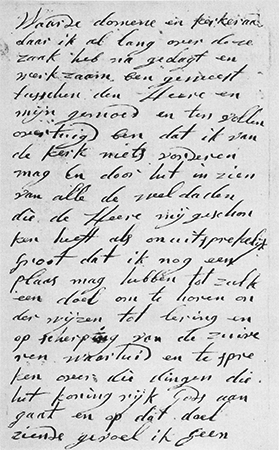 Waarde domene en kerkeraa
daar ik al lang over deze
zaak heb na gedagt en
werkzaam ben geweest
tusschen den Heere en
mijn gemoed en ten vollen
overtuigd ben dat ik van
de kerk niets vorderen
mag En door het in zien
van alle de weldaden
die de Heere mij geschon
ken heeft als onuitsprekelijk
groot dat ik nog een
plaas mag hebben tot zulk
een doel om te horen on
der wijzen tot lering en
op scherping van de zuive
ren waarheid en te spre
ken over die dingen die
het koning rijk Gods aan
gaat en op dat doel
ziende gevoel ik geen